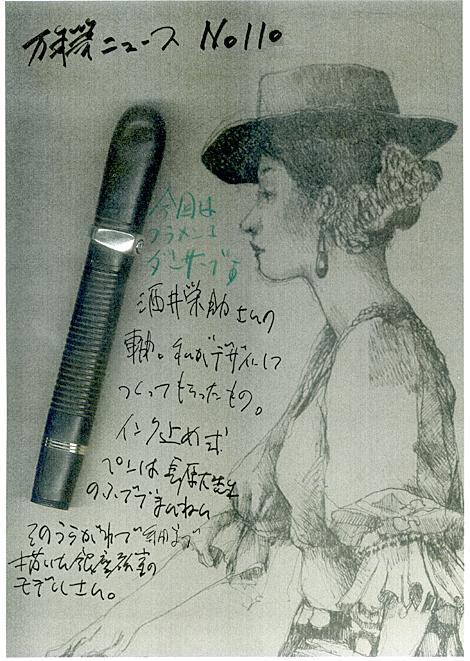 万年筆ニュース No110
今回は
フラメンコ
ダンサーです
酒井栄助さんの
軸。私がデザインして
つくってもらったもの。
インク止め式
ペンは長原大先生
のふでDEまんねん
そのうらがわで
描いた銀座教室の
モデルさん。